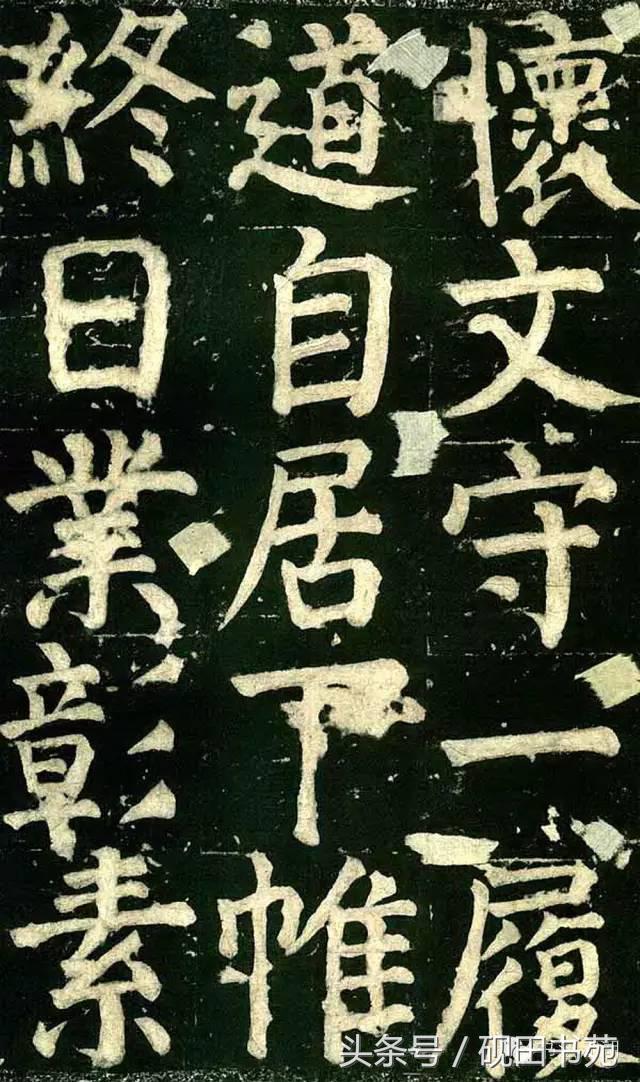 懷文守一履
道自居下帷
終日業彰素
头条号／砚田书苑